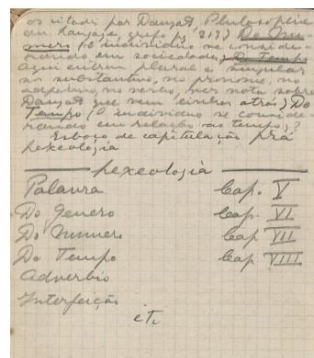 os citado por Dauzat, Philosophie
du langage, grupo pg. 213) Do Nu-
mero (O individuo se conside-
rando em sociedade) Do Tempo
Aqui entram plural e singular
no substantivo, no pronome, no
adjectivo, no verbo, ver nota sobre
Dauzat que vem atrás) Do
Tempo (O individuo se conside-
rando em relação ao tempo)
Esboço de capitulação prá
Lexeologia
Lexeologia
Palavra Cap. V
Do Genero Cap. VI
Do Numero Cap VII
Do Tempo Cap VIII
Adverbio
Interjeição
etc